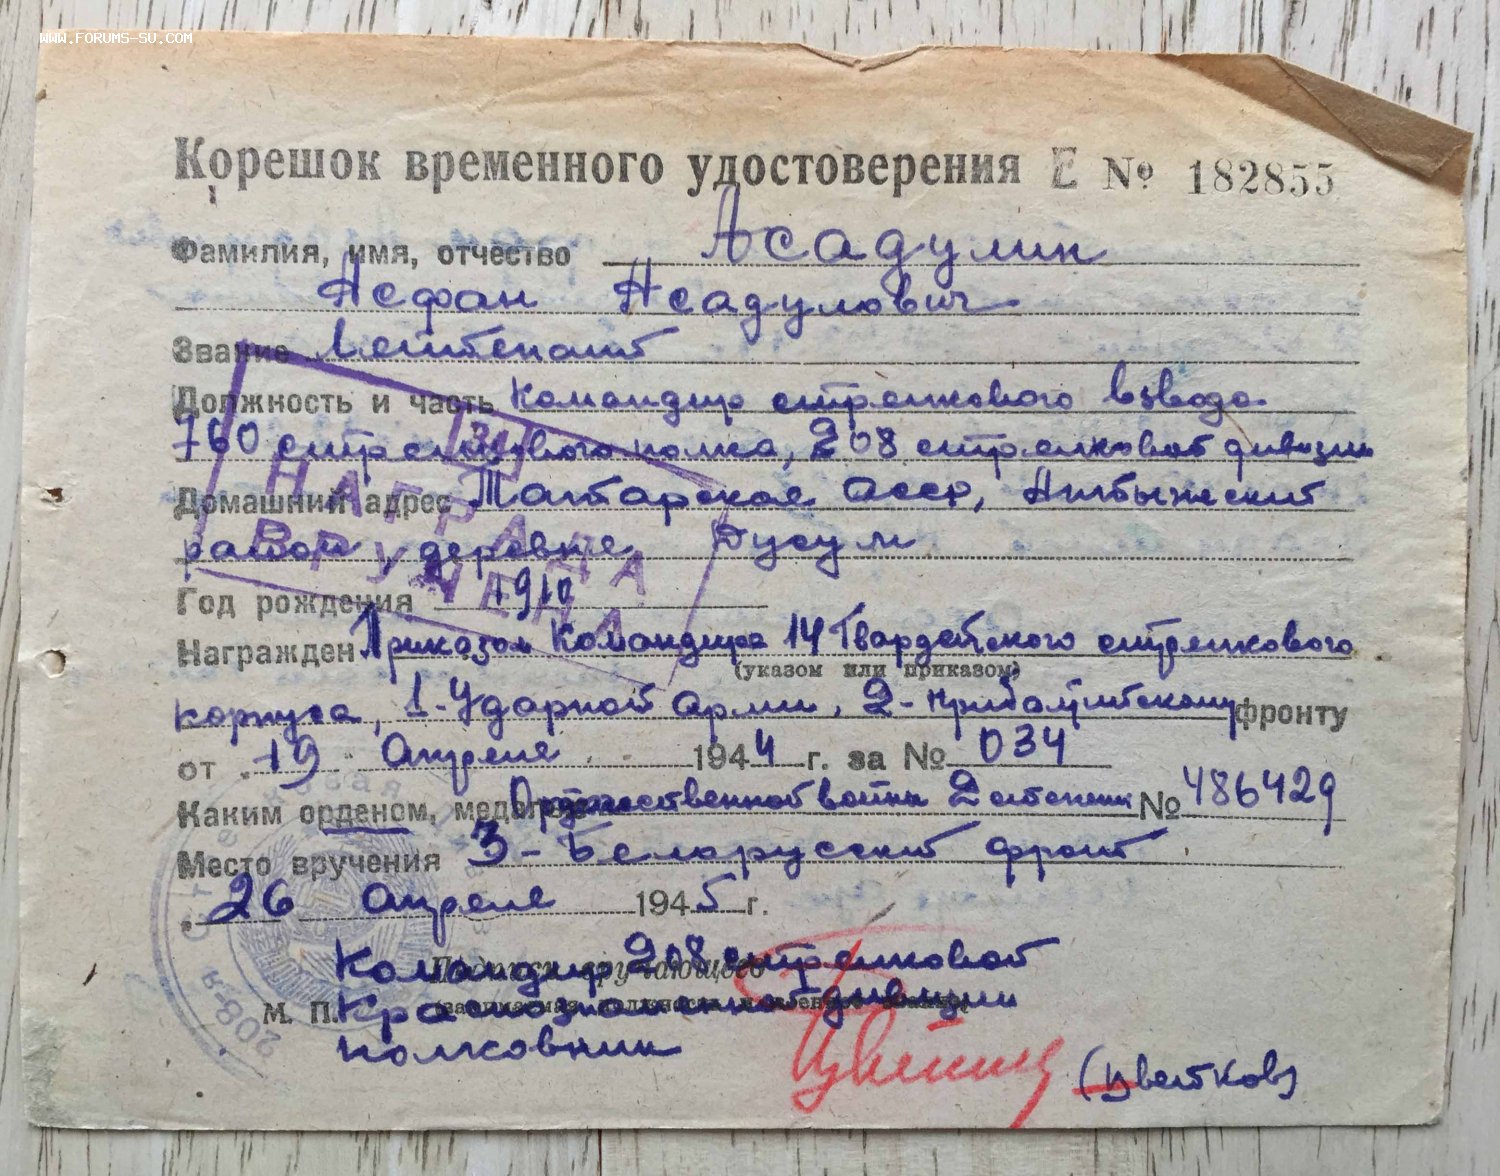 WWW.FORUMS-SU.COM
Корешок временного удостоверения Е № 182855
Фамилия, имя, отчество Асадулин
Асфан Асадулович
Звание Лейтенант
Должность и часть Командир стрелкового взвода
760 стрелкового полка, 208 стрелковой дивизии
Домашний адрес Татарская АССР,
район, деревня
НАГРАДА
ВРУЧЕНА
Год рождения 1910
Награжден Приказом Командира 14 Гвардейского стрелкового
(указом или приказом)
корпуса, 1-Ударной Армии, 2-Прибалтийскому фронту
от 19 Апреля 1944 г. за № 034
Каким орденом, медалью Отечественной войны 2 степени № 486429
Место вручения 3-Белорусский фронт
26 Апреля 1945 г.
Командир 208 стрелковой
Подпись вручающего
М. П. Краснознаменной дивизии
полковник (Цветков)
208-я